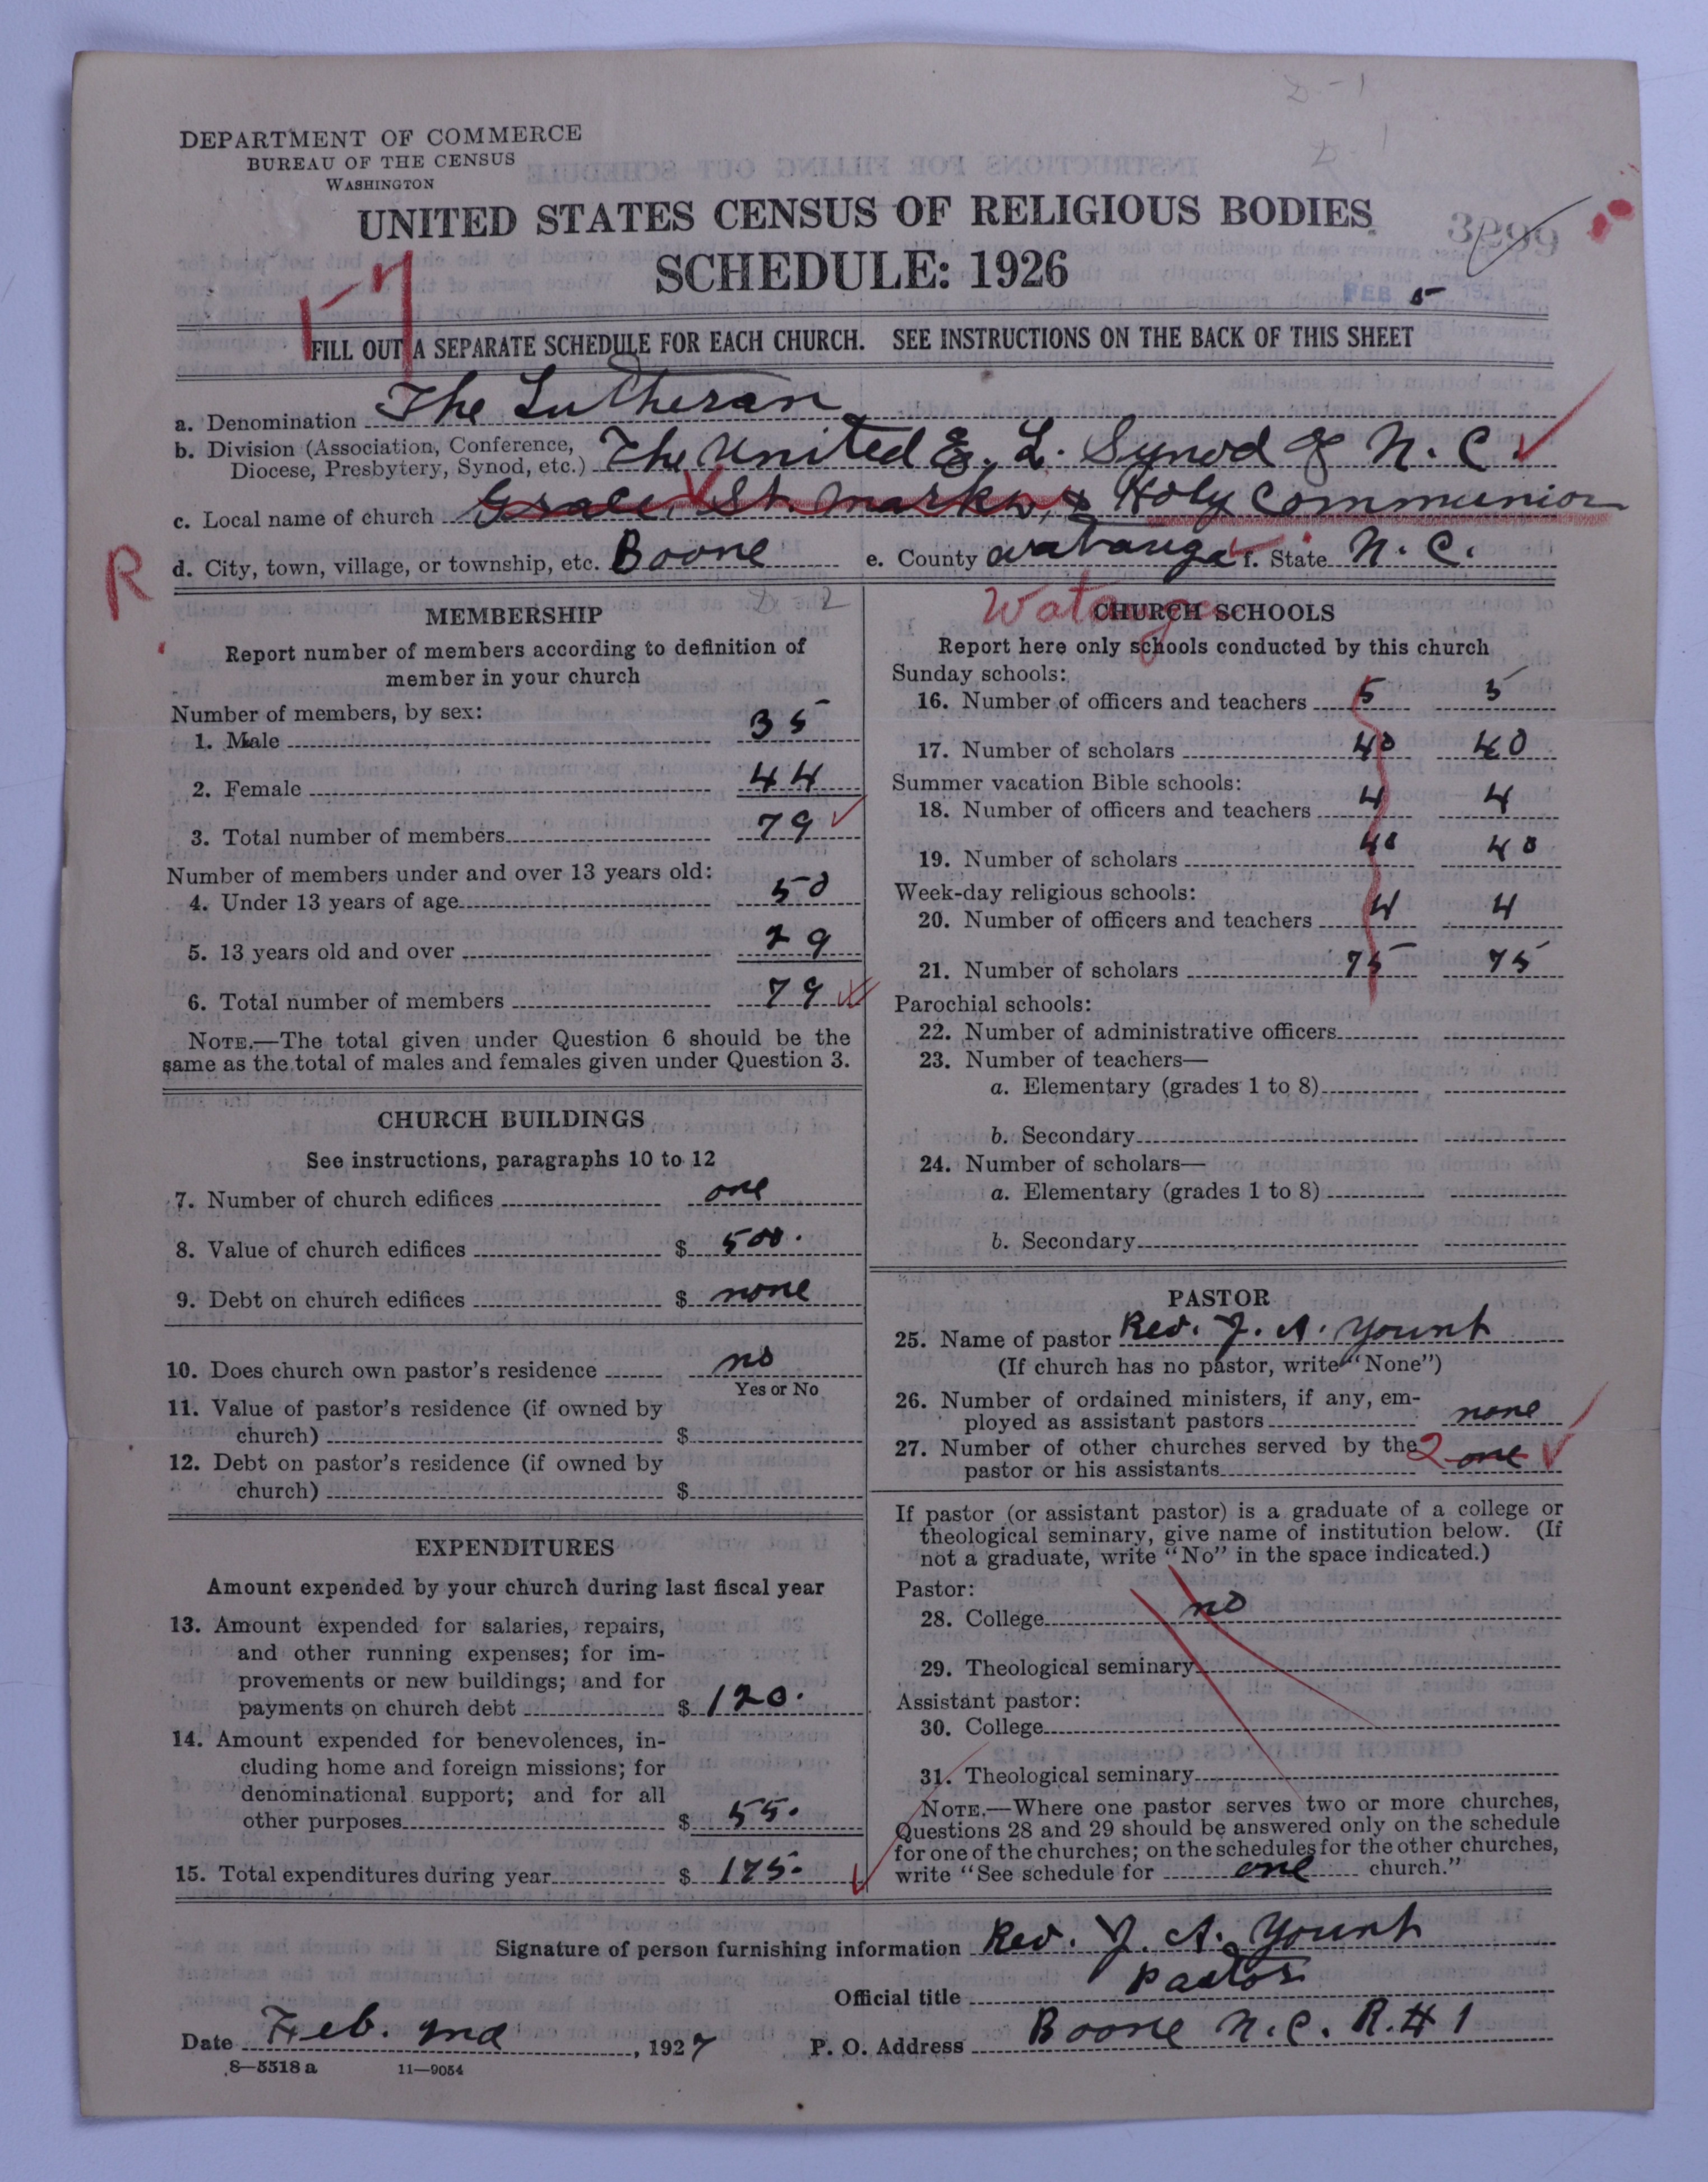 D-1
D-1
DEPARTMENT OF COMMERCE
BUREAU OF THE CENSUS
WASHINGTON
UNITED STATES CENSUS OF RELIGIOUS BODIES
3299
SCHEDULE: 1926
FEB 5
FILL OUT A SEPARATE SCHEDULE FOR EACH CHURCH. SEE INSTRUCTIONS ON THE BACK OF THIS SHEET
a. Denomination The Lutheran
b. Division (Association, Conference, Diocese, Presbytery, Synod, etc.) The United E. L. Synod of N. C.
c. Local name of church Grace, St. Marks, & Holy Communion
R
d. City, town, village, or township, etc. Boone e. County Watauga f. State N. C.
Watauga
MEMBERSHIP
Report number of members according to definition of
member in your church
Number of members, by sex:
1. Male 35
2. Female 44
3. Total number of members 79
Number of members under and over 13 years old:
4. Under 13 years of age 50
5. 13 years old and over 29
6. Total number of members 79
NOTE.—The total given under Question 6 should be the
same as the total of males and females given under Question 3.
CHURCH BUILDINGS
See instructions, paragraphs 10 to 12
7. Number of church edifices one
8. Value of church edifices $ 500.
9. Debt on church edifices $ none
10. Does church own pastor's residence no
Yes or No
11. Value of pastor's residence (if owned by
church) $
12. Debt on pastor's residence (if owned by
church) $
EXPENDITURES
Amount expended by your church during last fiscal year
13. Amount expended for salaries, repairs,
and other running expenses; for im-
provements or new buildings; and for
payments on church debt $ 120.
14. Amount expended for benevolences, in-
cluding home and foreign missions; for
denominational support; and for all
other purposes $ 55.
15. Total expenditures during year $ 175.
CHURCH SCHOOLS
Report here only schools conducted by this church
Sunday schools:
16. Number of officers and teachers 5 5
17. Number of scholars 40 40
Summer vacation Bible schools:
18. Number of officers and teachers 4 4
19. Number of scholars 40 40
Week-day religious schools:
20. Number of officers and teachers 4 4
21. Number of scholars 75 75
Parochial schools:
22. Number of administrative officers
23. Number of teachers—
a. Elementary (grades 1 to 8)
b. Secondary
24. Number of scholars—
a. Elementary (grades 1 to 8)
b. Secondary
PASTOR
25. Name of pastor Rev. J. A. Yount
(If church has no pastor, write "None")
26. Number of ordained ministers, if any, em-
ployed as assistant pastors none
27. Number of other churches served by the
pastor or his assistants 2 one
If pastor (or assistant pastor) is a graduate of a college or
theological seminary, give name of institution below. (If
not a graduate, write "No" in the space indicated.)
Pastor:
28. College no
29. Theological seminary
Assistant pastor:
30. College
31. Theological seminary
NOTE.—Where one pastor serves two or more churches,
Questions 28 and 29 should be answered only on the schedule
for one of the churches; on the schedules for the other churches,
write "See schedule for one church."
Signature of person furnishing information Rev. J. A. Yount
Official title Pastor
Date Feb. 2nd, 1927 P. O. Address Boone N.C. R.#1
8—5518 a 11—9054